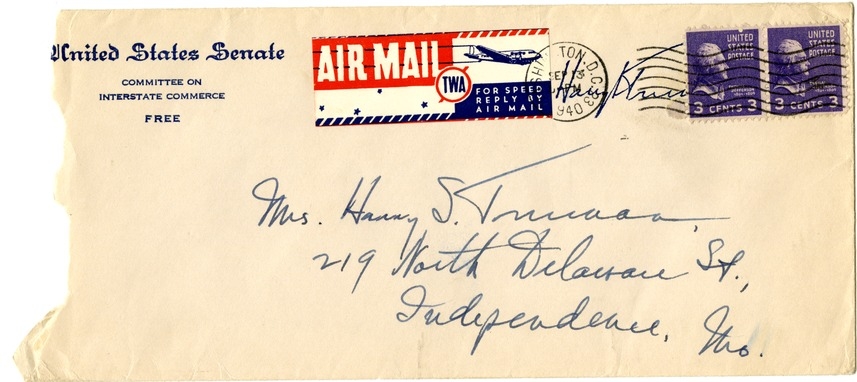 United States Senate
COMMITTEE ON
INTERSTATE COMMERCE
FREE
AIR MAIL
TWA
FOR SPEED
REPLY BY
AIR MAIL
TON, D.C.
SEP
1940
Harry S Trum
UNITED
STATES
POSTAGE
3 CENTS 3
UNITED
STATES
POSTAGE
3 CENTS 3
Mrs. Harry S. Truman,
219 North Delaware St.,
Independence, Mo.